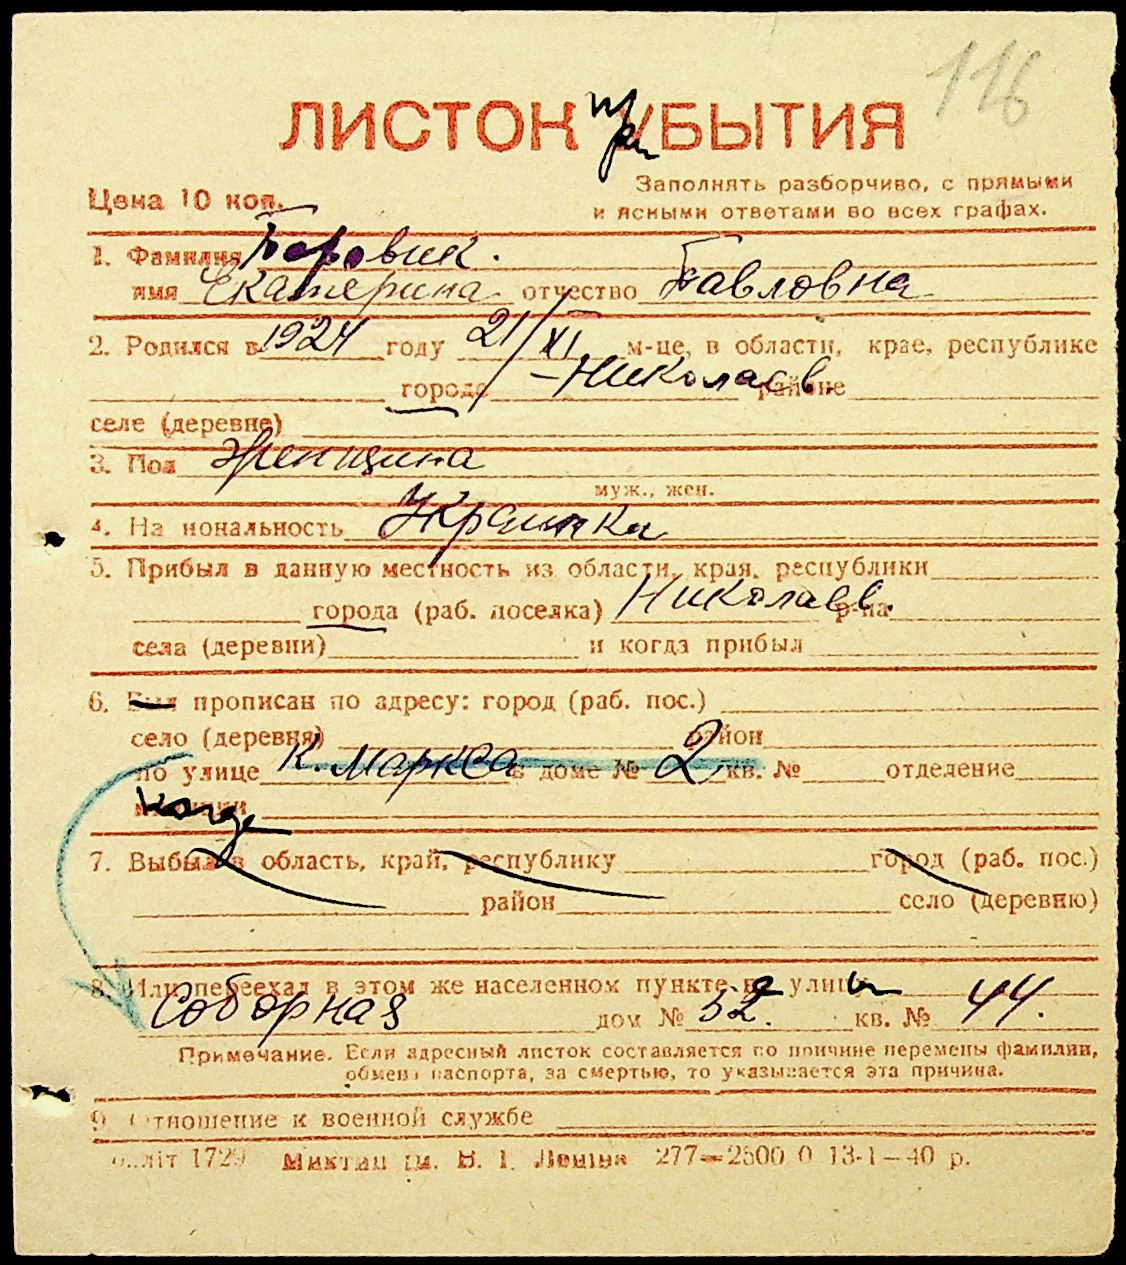 116
ЛИСТОК прибЫТИЯ
Цена 10 коп.
Заполнять разборчиво, с прямыми
и ясными ответами во всех графах.
1. Фамилия Боровик.
имя Екатерина отчество Павловна
2. Родился в 1924 году 21/XI м-це, в области, крае, республике
городе - Николаев. районе
селе (деревне)
3. Пол Женщина
муж., жен.
4. На иональность Украинка
5. Прибыл в данную местность из области, края, республики
города (раб. поселка) Николаев. р-на
села (деревни) и когда прибыл
6. Был прописан по адресу: город (раб. пос.)
село (деревня) район
по улице К. Маркса в доме № 2 кв. № отделение
7. Выбыл в область, край, республику город (раб. пос.)
район село (деревню)
8. Или переехал в этом же населенном пункте с улицы
Соборная дом № 52. кв. № 44.
Примечание. Если адресный листок составляется по причине перемены фамилии,
обмена паспорта, за смертью, то указывается эта причина.
9 Отношение к военной службе
літ 1729 ім. В. І. Леніна 277—2500 0 13-1—40 р.